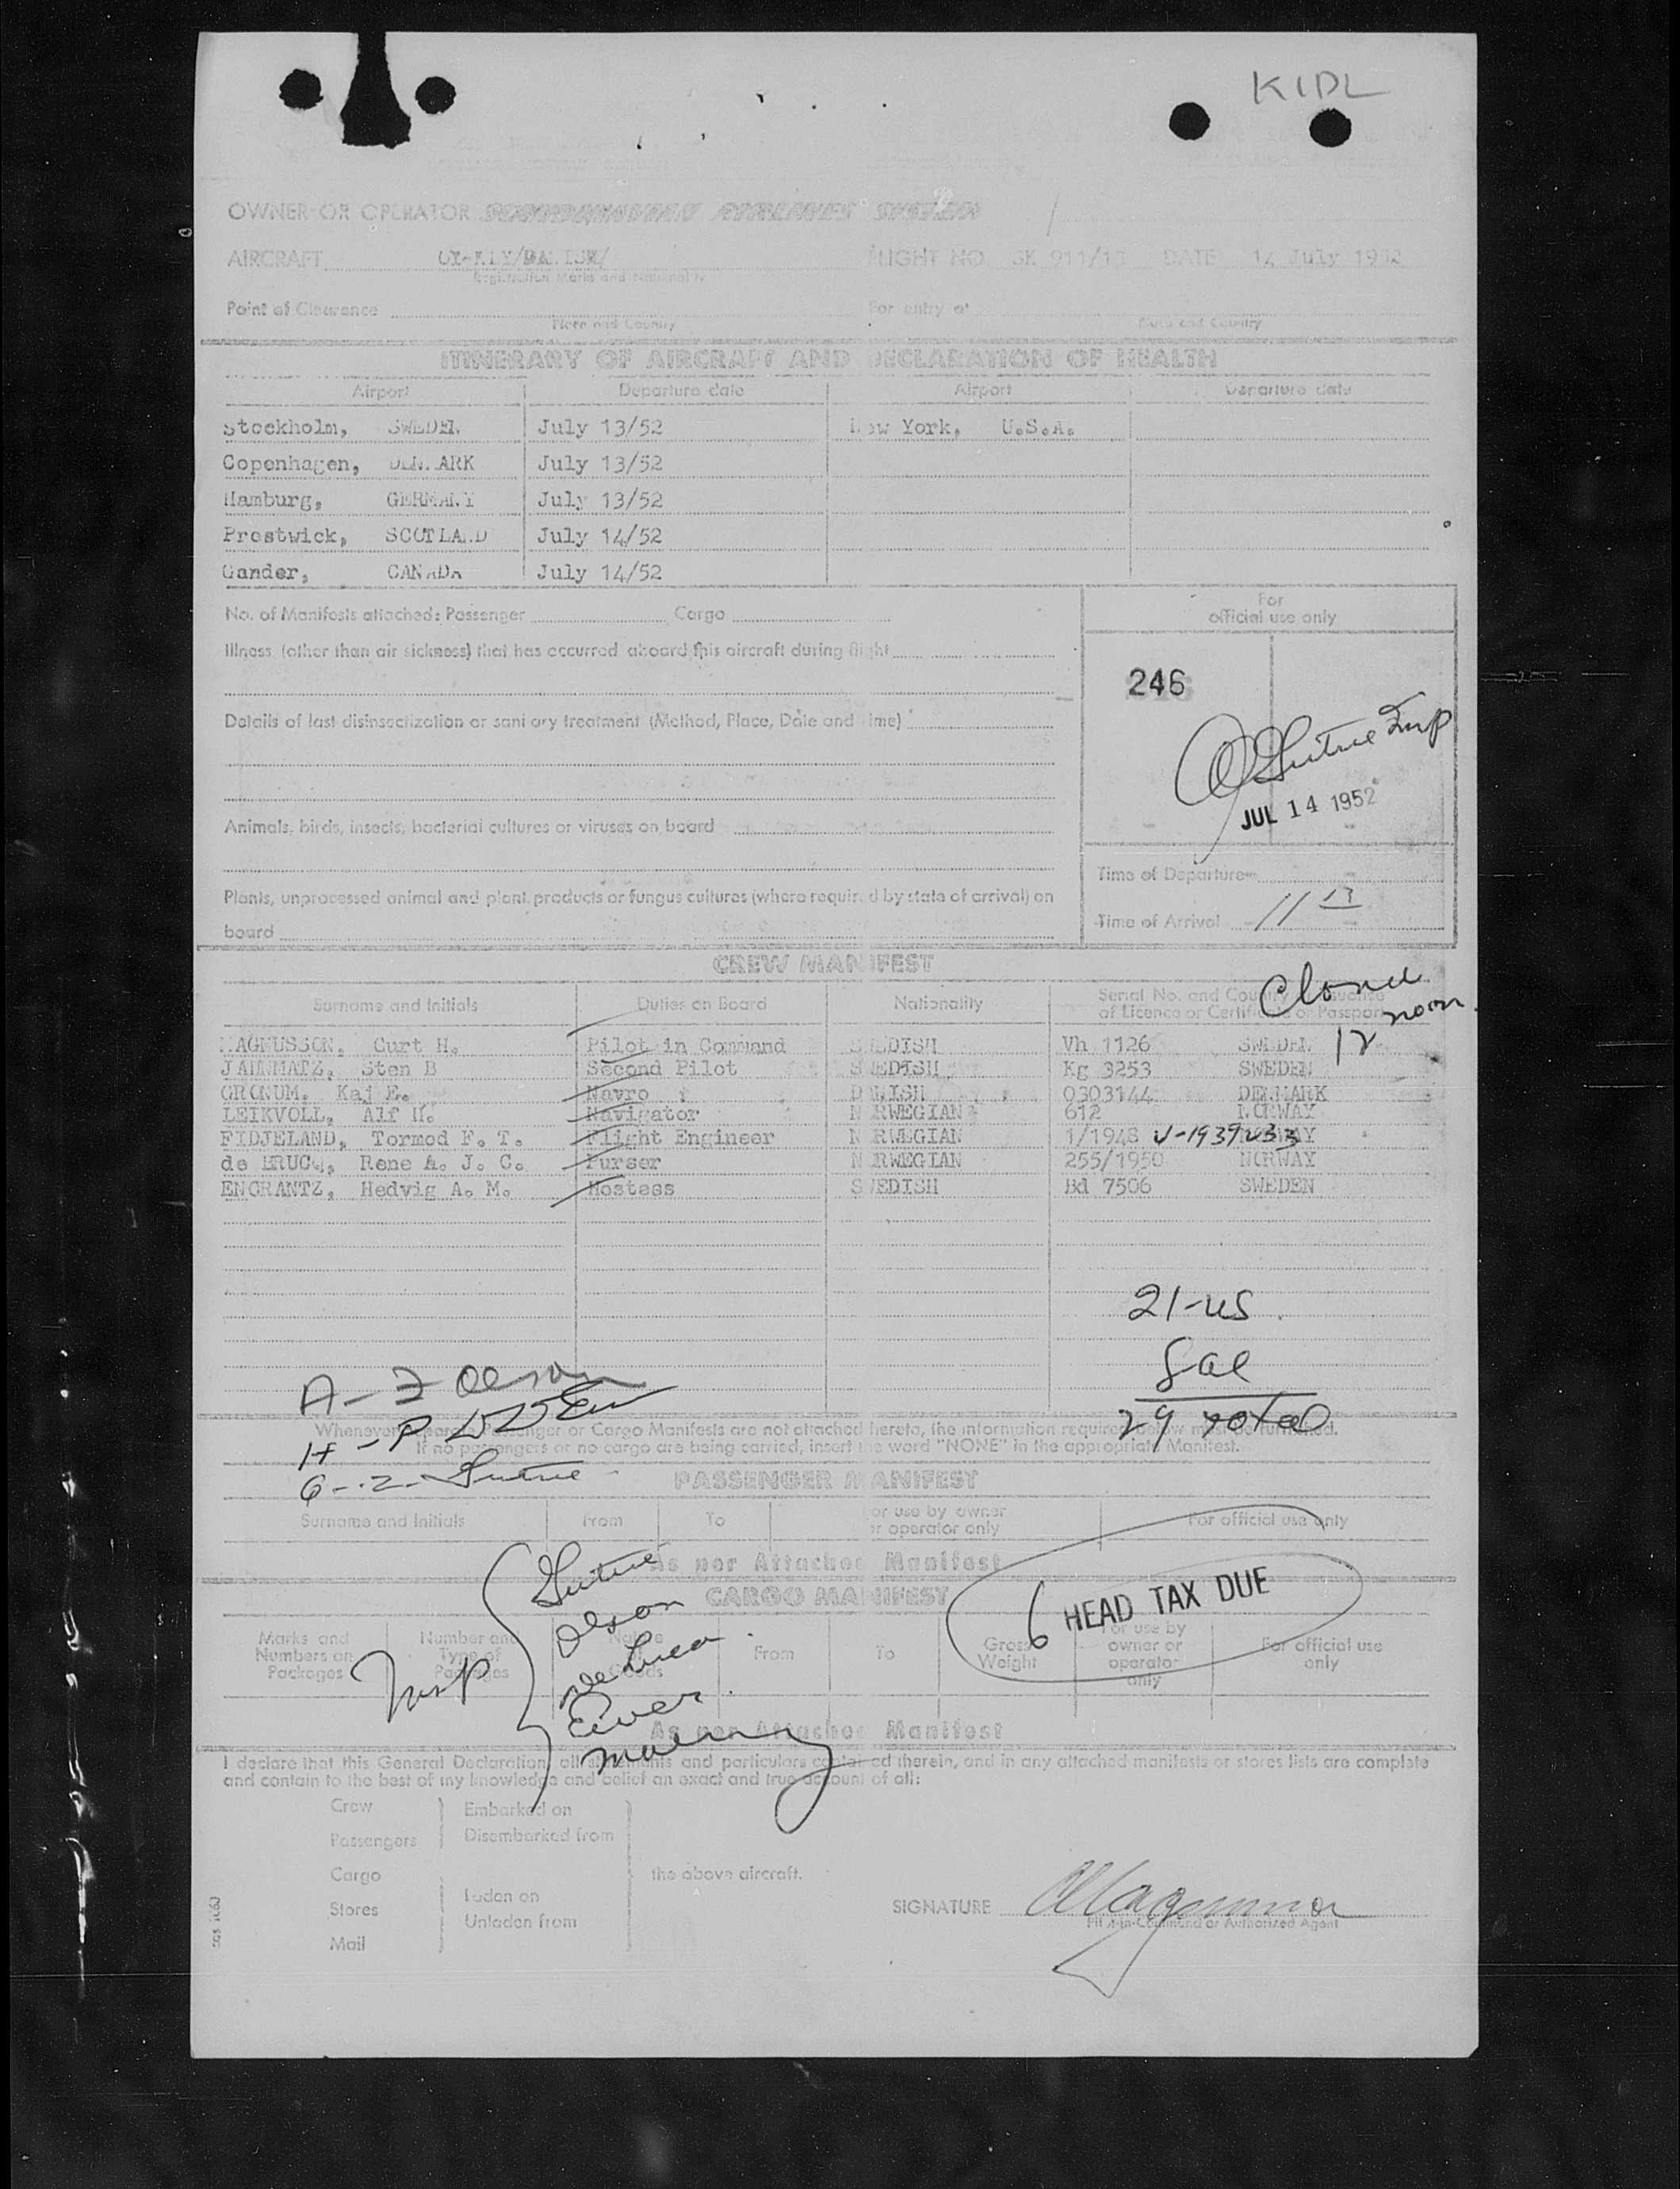 KIDL
OWNER OR OPERATOR SCANDINAVIAN AIRLINES SYSTEM
AIRCRAFT FLIGHT NO. SK 911/13 DATE 14 July 1952
Registration Marks and Nationality
Point of Clearance For entry at
Place and Country Place and Country
ITINERARY OF AIRCRAFT AND DECLARATION OF HEALTH
Airport Departure date Airport Departure date
Stockholm, SWEDEN July 13/52 New York, U.S.A.
Copenhagen, DENMARK July 13/52
Hamburg, GERMANY July 13/52
Prestwick, SCOTLAND July 14/52
Gander, CANADA July 14/52
No. of Manifests attached: Passenger Cargo
For
official use only
Illness (other than air sickness) that has occurred aboard this aircraft during flight
246
Details of last disinsectization or sanitary treatment (Method, Place, Date and Time)
Insp
JUL 14 1952
Animals, birds, insects, bacterial cultures or viruses on board
Time of Departure
Plants, unprocessed animal and plant products or fungus cultures (where required by state of arrival) on
board
Time of Arrival 11 13
CREW MANIFEST
Surname and Initials Duties on Board Nationality Serial No. and Country of Issuance
of Licence or Certificate or Passport
12 noon
MAGNUSSON, Curt H. Pilot in Command SWEDISH Vh 1126 SWEDEN
JAHNMATZ, Sten B Second Pilot SWEDISH Kg 3253 SWEDEN
GRONUM, Kaj E. Navro DANISH 0303144 DENMARK
LEIKVOLL, Alf H. Navigator NORWEGIAN 612 NORWAY
FIDJELAND, Tormod F. T. Flight Engineer NORWEGIAN 1/1948 V-1939233 NORWAY
de BRUCQ, Rene A. J. C. Purser NORWEGIAN 255/1950 NORWAY
ENCRANTZ, Hedvig A. M. Hostess SWEDISH Bd 7506 SWEDEN
21-US
8 al
29 total
A - 7 Olson
H - P
6 - 2 -
Whenever Passenger or Cargo Manifests are not attached hereto, the information required below must be furnished.
If no passengers or no cargo are being carried, insert the word "NONE" in the appropriate Manifest.
PASSENGER MANIFEST
Surname and Initials From To For use by owner
or operator only For official use only
As per Attached Manifest
CARGO MANIFEST
6 HEAD TAX DUE
Marks and
Numbers on
Packages
Number and
Type of
Packages
Nature
of
Goods
From To Gross
Weight
For use by
owner or
operator
only
For official use
only
Insp
Olson
De Luca
As per Attached Manifest
I declare that this General Declaration, all statements and particulars contained therein, and in any attached manifests or stores lists are complete
and contain to the best of my knowledge and belief an exact and true account of all:
Crew Embarked on
Passengers Disembarked from
Cargo the above aircraft.
Stores Laden on
Unladen from
Mail
SIGNATURE CMagnusson
Pilot-in-Command or Authorized Agent